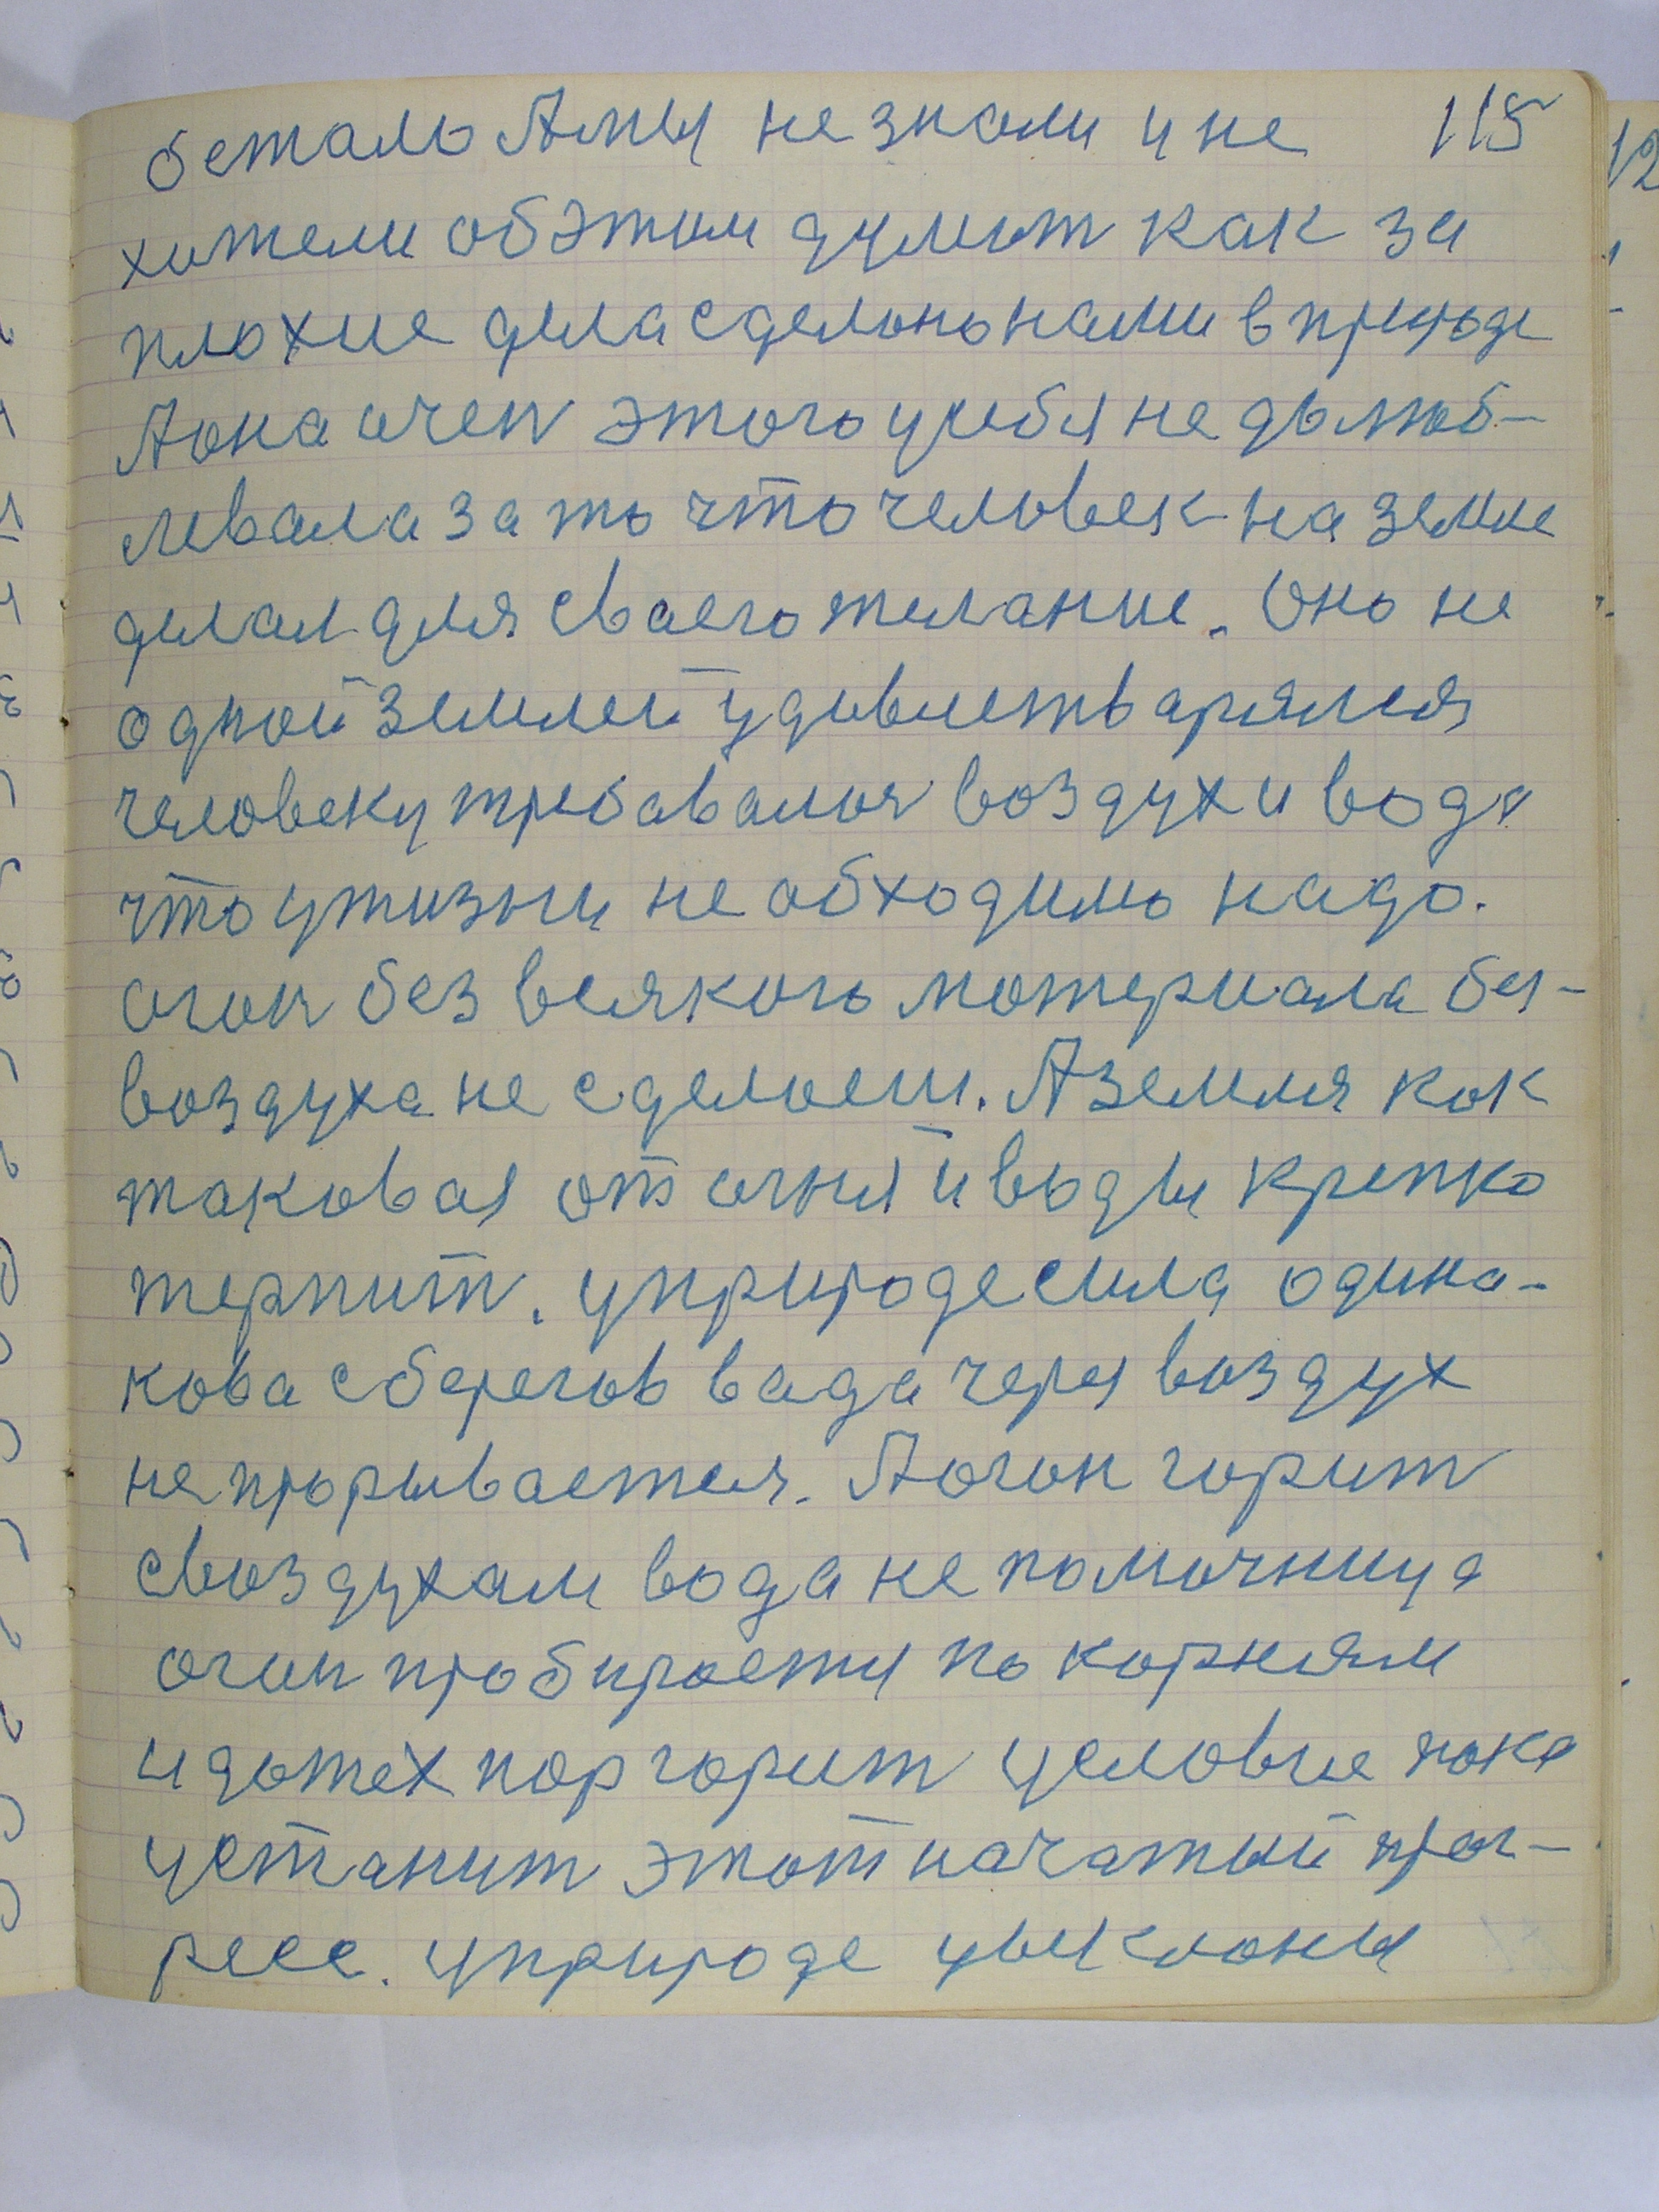 бстало А мы не знали и не 115
хотели об этим думат как за
плохие дела сделоно нами в природе
А она очен этого у себя не дылюб-
левала за то что человек на земле
делал для сваего желание. Оно не
одной землей удовлетварялся
человеку требавалоя воздух и вода
что у жизни не обходимо надо.
огон без всякого мотериала без-
воздуха не сделоеш. А земля как
таковая от огня и воды крепко
терпит. у природе сила одина-
кова с берегов вада через воздух
не прорывается. А огон горит
с воздухам вода не помочница
огон пробираетя по корням
и до тех пор горит условие пока
устанит этот начатый прог-
ресс. у природе цыклоны